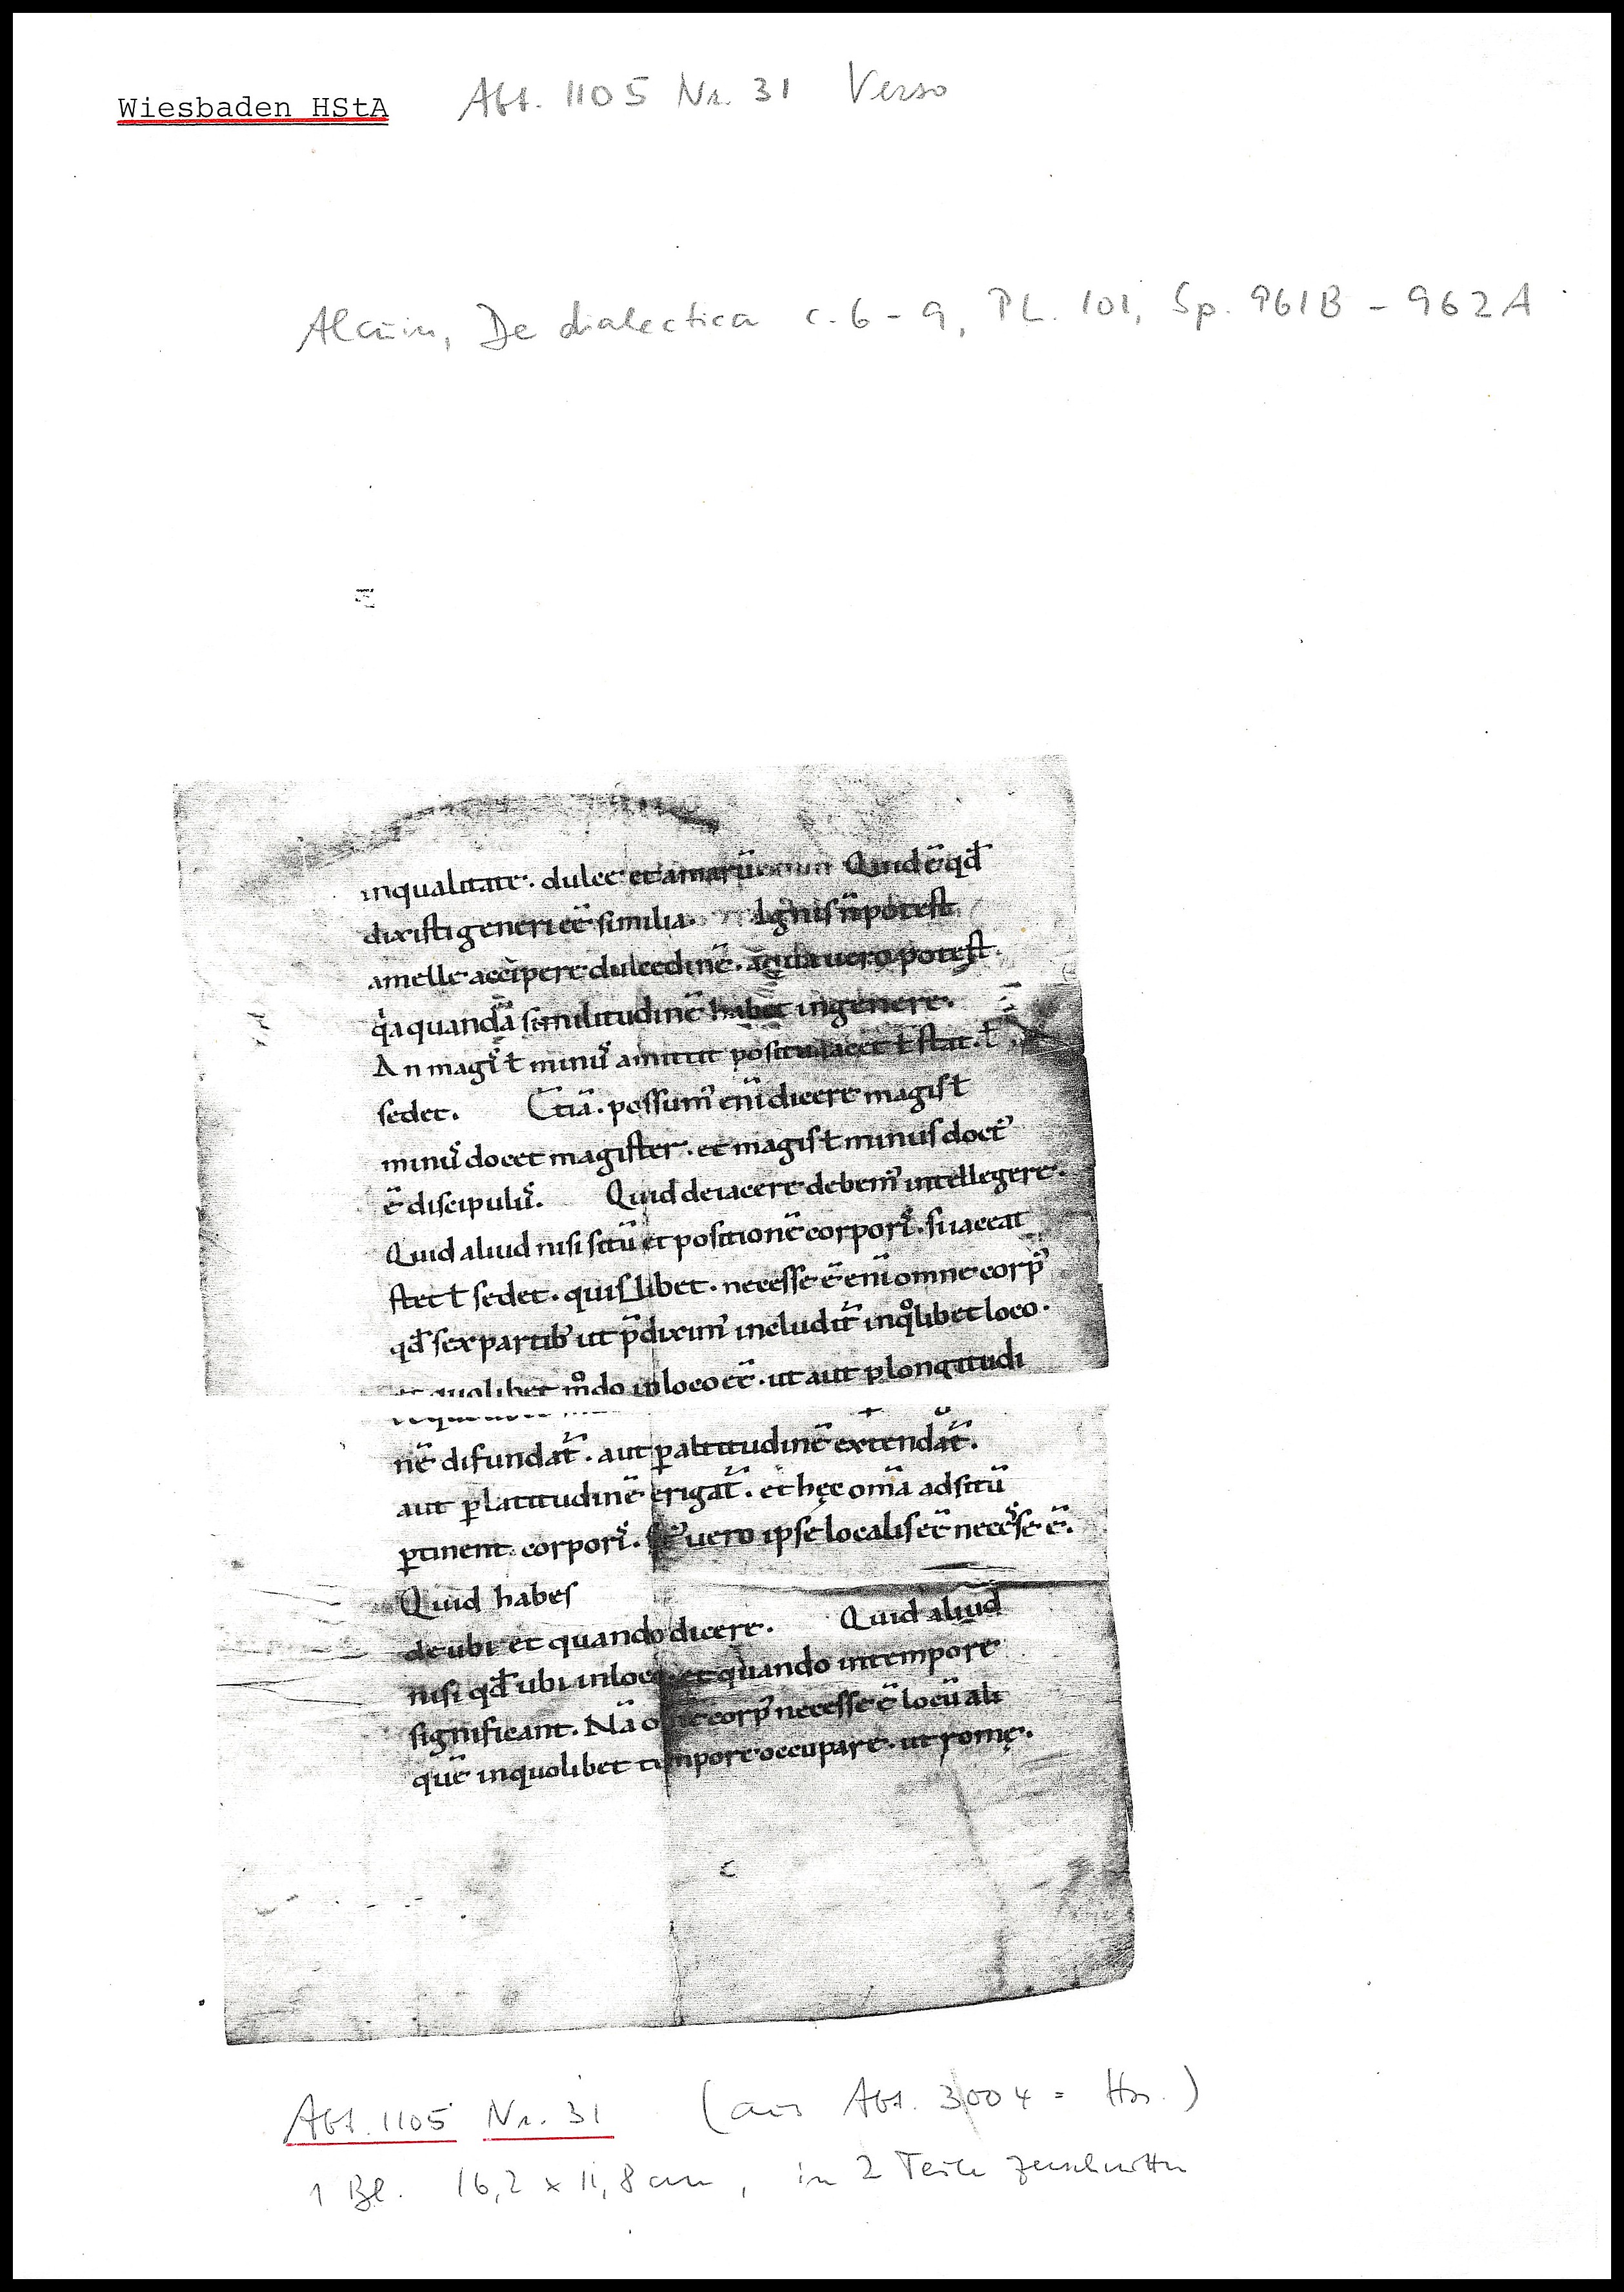 Wiesbaden HStA Abt. 1105 Nr. 31 Verso
Alcuin, De dialectica c. 6 - 9, PL. 101, Sp. 961B - 962A
inqualitate. dulce et amarū Quid ē qd̄
dixisti generi eē similia. Ignis n̄ potest
amelle accipere dulcedinē. aqua uero potest
q̇a quandā similitudinē habet ingenere.
An magis ł minus amittit positu iacet ł stat. ł
sedet. Etiā. possum' enī dicere magis ł
minus docet magister. et magis ł minus doct'
ē discipulus. Quid deiacere debem' intellegere.
Quid aliud nisi sitū et positionē corporis. si iaceat
stet ł sedet. quislibet. necesse ē enī omne corp'
qd̄ sex partib' ut p̄dixim' includit̄ inqͦlibet loco.
quolibet mͦdo inloco eē. ut aut ꝑ longitudi
nē difundat̄. aut ꝑ altitudinē extendat̄.
aut ꝑ latitudinē erigat̄. et hęc om̄a adsitū
ꝑtinent corporis. uero ipse localis eē necesse ē.
Quid habes
de ubi et quando dicere. Quid aliud
nisi qd̄ ubi inloco et quando intempore
significant. Nā omne corp' necesse ē locū ali
quē inquolibet tempore occupare. ut romę.
Abt. 1105 Nr. 31 (aus Abt. 3004 = Hss.)
1 Bl. 16,2 x 11,8 cm, in 2 Teile zerschnitten